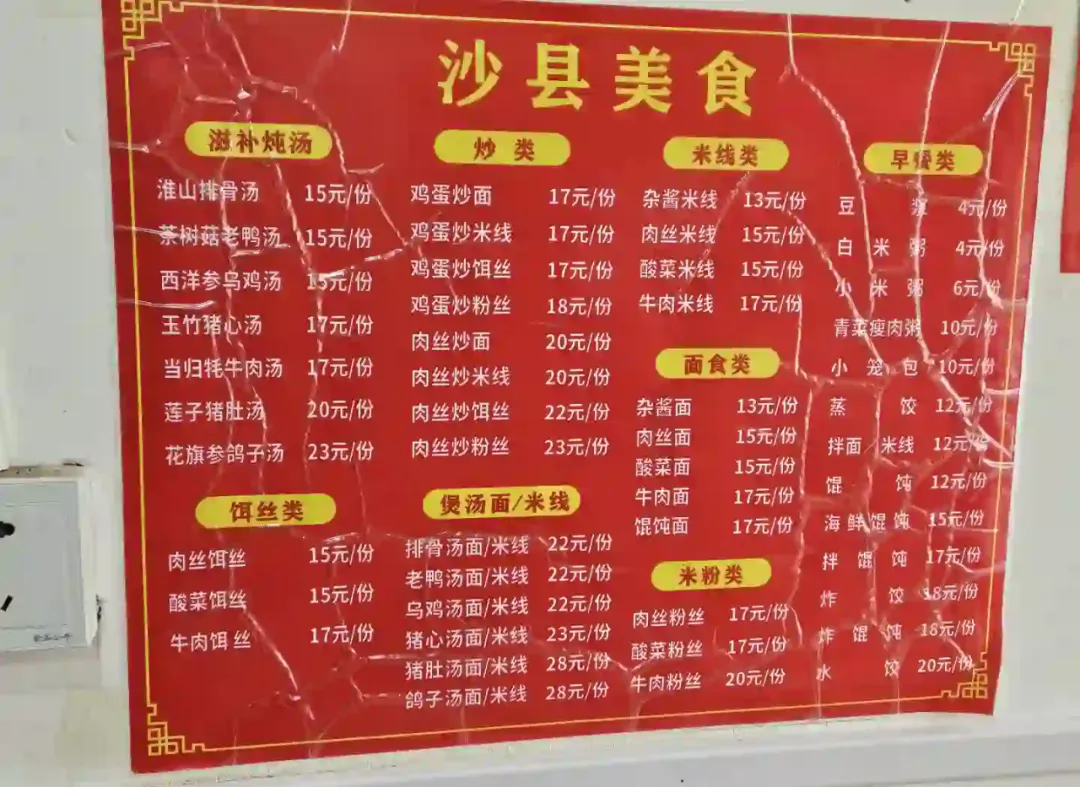 沙县美食
滋补炖汤
淮山排骨汤 15元/份
茶树菇老鸭汤 15元/份
西洋参乌鸡汤 15元/份
玉竹猪心汤 17元/份
当归牦牛肉汤 17元/份
莲子猪肚汤 20元/份
花旗参鸽子汤 23元/份
饵丝类
肉丝饵丝 15元/份
酸菜饵丝 15元/份
牛肉饵丝 17元/份
炒类
鸡蛋炒面 17元/份
鸡蛋炒米线 17元/份
鸡蛋炒饵丝 17元/份
鸡蛋炒粉丝 18元/份
肉丝炒面 20元/份
肉丝炒米线 20元/份
肉丝炒饵丝 22元/份
肉丝炒粉丝 23元/份
煲汤面/米线
排骨汤面/米线 22元/份
老鸭汤面/米线 22元/份
乌鸡汤面/米线 22元/份
猪心汤面/米线 23元/份
猪肚汤面/米线 28元/份
鸽子汤面/米线 28元/份
米线类
杂酱米线 13元/份
肉丝米线 15元/份
酸菜米线 15元/份
牛肉米线 17元/份
面食类
杂酱面 13元/份
肉丝面 15元/份
酸菜面 15元/份
牛肉面 17元/份
馄饨面 17元/份
米粉类
肉丝粉丝 17元/份
酸菜粉丝 17元/份
牛肉粉丝 20元/份
早餐类
豆浆 4元/份
白米粥 4元/份
小米粥 6元/份
青菜瘦肉粥 10元/份
小笼包 10元/份
蒸饺 12元/份
拌面 米线 12元/份
馄饨 12元/份
海鲜馄饨 15元/份
拌馄饨 17元/份
炸饺 18元/份
炸馄饨 18元/份
水饺 20元/份